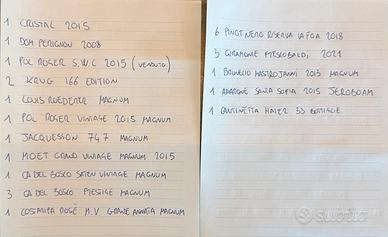 1 CRISTAL 2015
1 DOM PERIGNON 2008
1 POL ROGER S.W.C 2015 (VENDUTO)
2 KRUG 166 EDITION
1 LOUIS ROEDERER MAGNUM
1 POL ROGER VINTAGE 2015 MAGNUM
1 JACQUESSON 747 MAGNUM
1 MOET GRAND VINTAGE MAGNUM 2015
1 CA DEL BOSCO SATEN VINTAGE MAGNUM
3 CA DEL BOSCO PRESTIGE MAGNUM
1 COSTARIPA ROSÈ M.V. GRANDE ANNATA MAGNUM
6 PINOT NERO RISERVA LA FOA 2018
3 GIRAMONTE FRESCOBALDI, 2021
1 BRUNELLO MASTROJANNI 2015 MAGNUM
1 AMARONE SANTA SOFIA 2015 JEROBOAM
1 CANTINETTA HAIER 33 BOTTIGLIE
subito